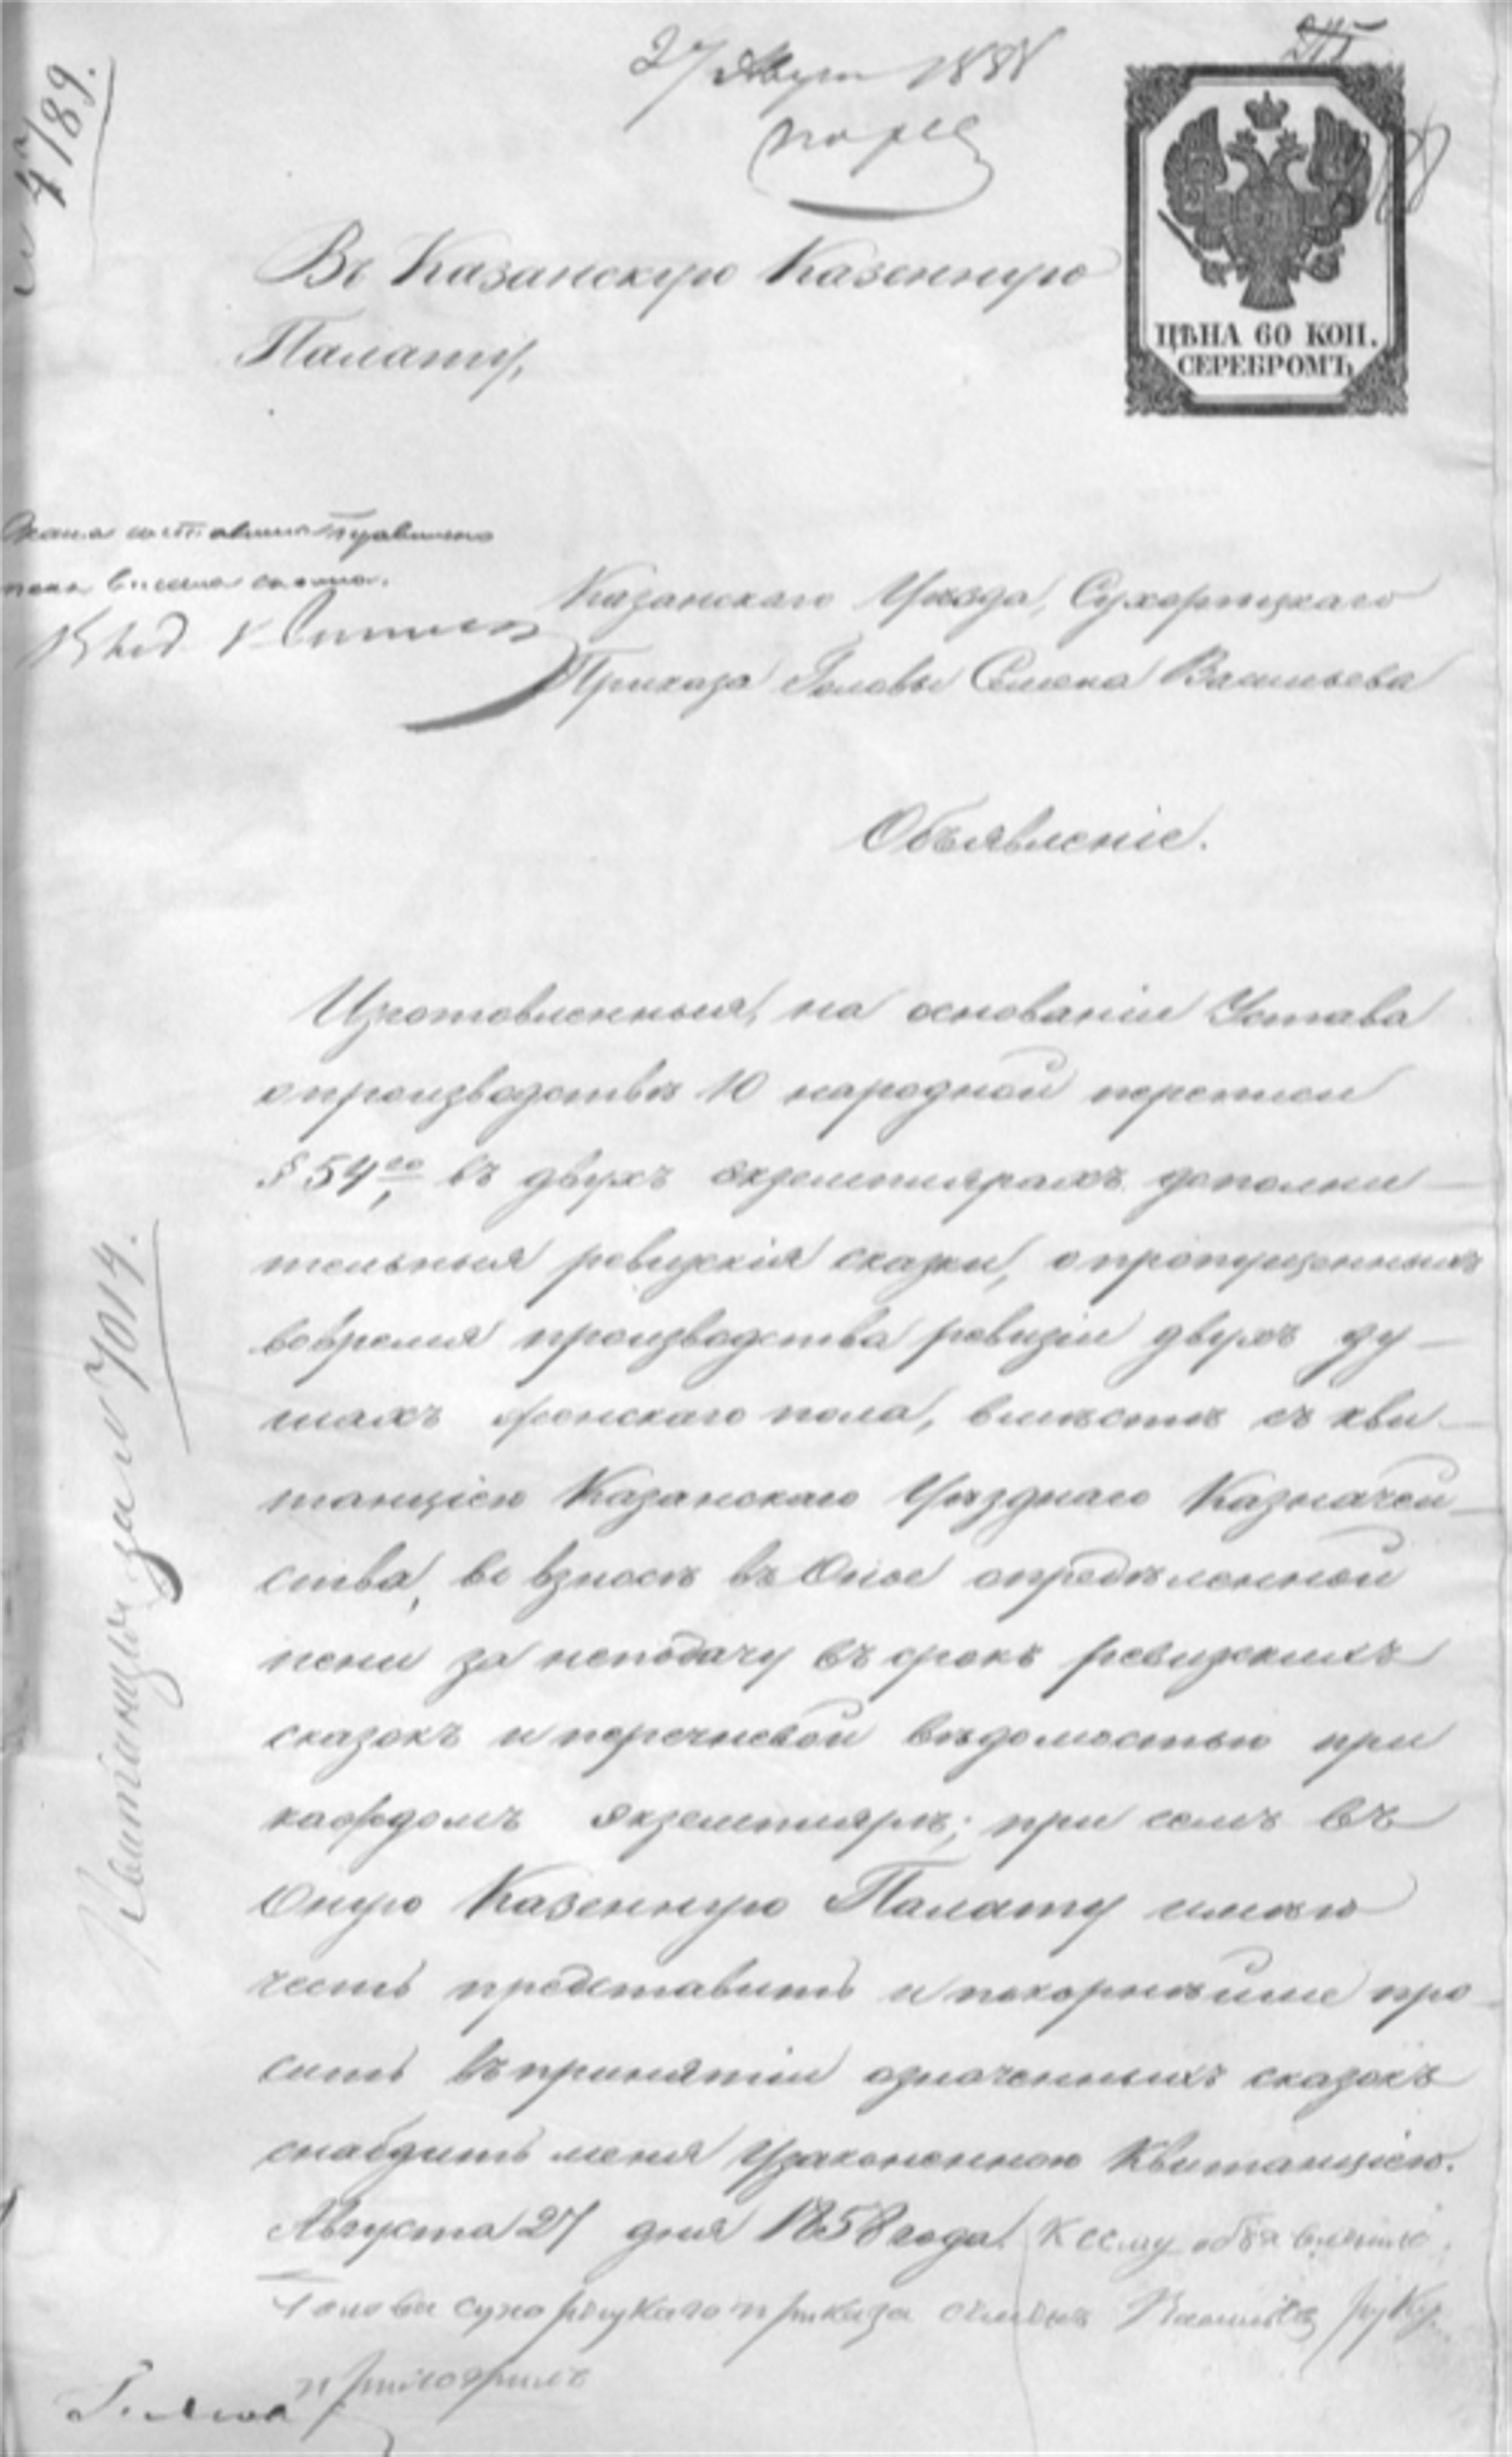 27 Август 1858
№ 4789.
Въ Казанскую Казенную
Палату,
ЦѢНА 60 КОП.
СЕРЕБРОМЪ
Казанскаго Уѣзда, Сухорѣцкаго
Приказа Головы Семена Васильева
Объявленіе.
Изготовленныя, на основаніи Устава
о производствѣ 10 народной переписи
§ 54го, въ двухъ экземплярахъ дополни–
тельныя ревижскія сказки, о пропущенныхъ
вовремя производства ревизіи двухъ ду–
шахъ женскаго пола, вмѣстѣ съ кви–
танціею Казанскаго Уѣзднаго Казначей–
ства, во взносѣ въ Оное опредѣленной
пени за неподачу въ срокъ ревижскихъ
сказокъ и перечневой вѣдомостью при
каждомъ экземплярѣ; при семъ въ
Оную Казенную Палату имѣю
честь представить и покорнѣйше про–
сить въ принятіи означенныхъ сказокъ
снабдить меня узаконенною Квитанціею.
Августа 27 дня 1858 года. К сему объявленію
Голова сухорѣцкаго приказа семенъ Васильевъ руку
приложилъ
Голова
Квитанція за № 7014.